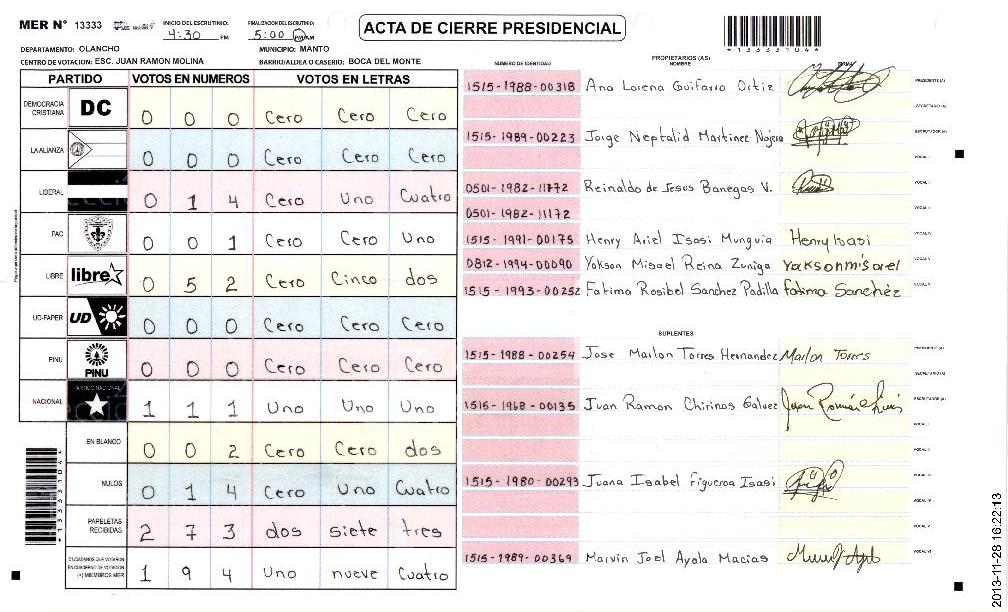 MER N° 13333
INICIO DEL ESCRUTINIO: 4:30 PM
FINALIZACION DEL ESCRUTINIO: 5:00 PM/AM
ACTA DE CIERRE PRESIDENCIAL
*13333104*
DEPARTAMENTO: OLANCHO
MUNICIPIO: MANTO
CENTRO DE VOTACION: ESC. JUAN RAMON MOLINA
BARRIO/ALDEA O CASERIO: BOCA DEL MONTE
PARTIDO VOTOS EN NUMEROS VOTOS EN LETRAS
DEMOCRACIA CRISTIANA DC 0 0 0 Cero Cero Cero
LA ALIANZA 0 0 0 Cero Cero Cero
LIBERAL 0 1 4 Cero Uno Cuatro
PAC 0 0 1 Cero Cero Uno
LIBRE libre 0 5 2 Cero Cinco dos
UD-FAPER UD 0 0 0 Cero Cero Cero
PINU PINU 0 0 0 Cero Cero Cero
NACIONAL 1 1 1 Uno Uno Uno
EN BLANCO 0 0 2 Cero Cero dos
NULOS 0 1 4 Cero Uno Cuatro
PAPELETAS RECIBIDAS 2 7 3 dos siete tres
CIUDADANOS QUE VOTARON EN CUADERNO DE VOTACION (+) MIEMBROS MER 1 9 4 Uno nueve Cuatro
PROPIETARIOS (AS)
NUMERO DE IDENTIDAD NOMBRE FIRMA
1515-1988-00318 Ana Lorena Guifarro Ortiz PRESIDENTE (A)
SECRETARIO (A)
1515-1989-00223 Jorge Neptalid Martinez Najera ESCRUTADOR (A)
VOCAL I
0501-1982-11172 Reinaldo de Jesus Banegas V. VOCAL II
0501-1982-11172 VOCAL III
1515-1991-00175 Henry Ariel Isasi Munguia Henry Isasi VOCAL IV
0812-1994-00090 Yakson Misael Reina Zuniga Yaksonmisael VOCAL V
1515-1993-00252 Fatima Rosibel Sanchez Padilla fatima Sanchéz
SUPLENTES
1515-1988-00254 Jose Marlon Torres Hernandez Marlon Torres PRESIDENTE (A)
SECRETARIO (A)
1515-1968-00135 Juan Ramon Chirinos Galvez ESCRUTADOR (A)
VOCAL I
1515-1980-00293 Juana Isabel Figueroa Isasi
VOCAL IV
VOCAL V
1515-1989-00369 Marvin Joel Ayala Macias VOCAL VI
*13333104*
2013-11-28 16:22:13